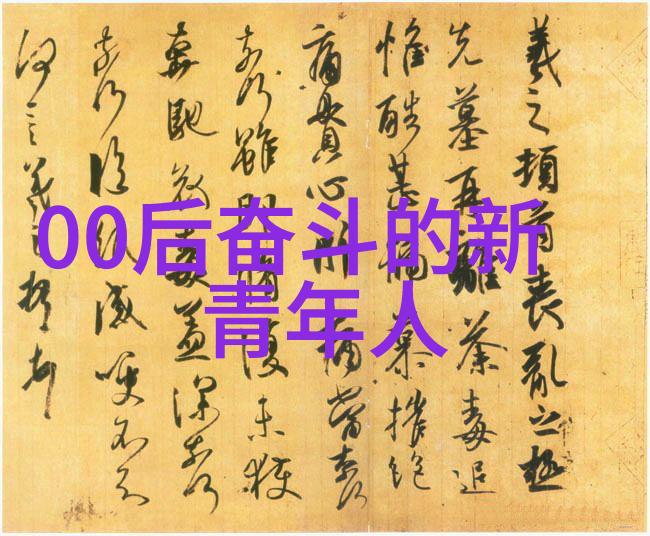 00后奋斗的新
青年人
羲之頓首喪亂之極
先墓再離荼毒追
惟酷甚號慕摧絕
痛貫心肝痛當奈何
奈何雖即脩復未獲
奔馳哀毒益深奈何
奈何臨紙感哽不知
何言羲之頓首頓首